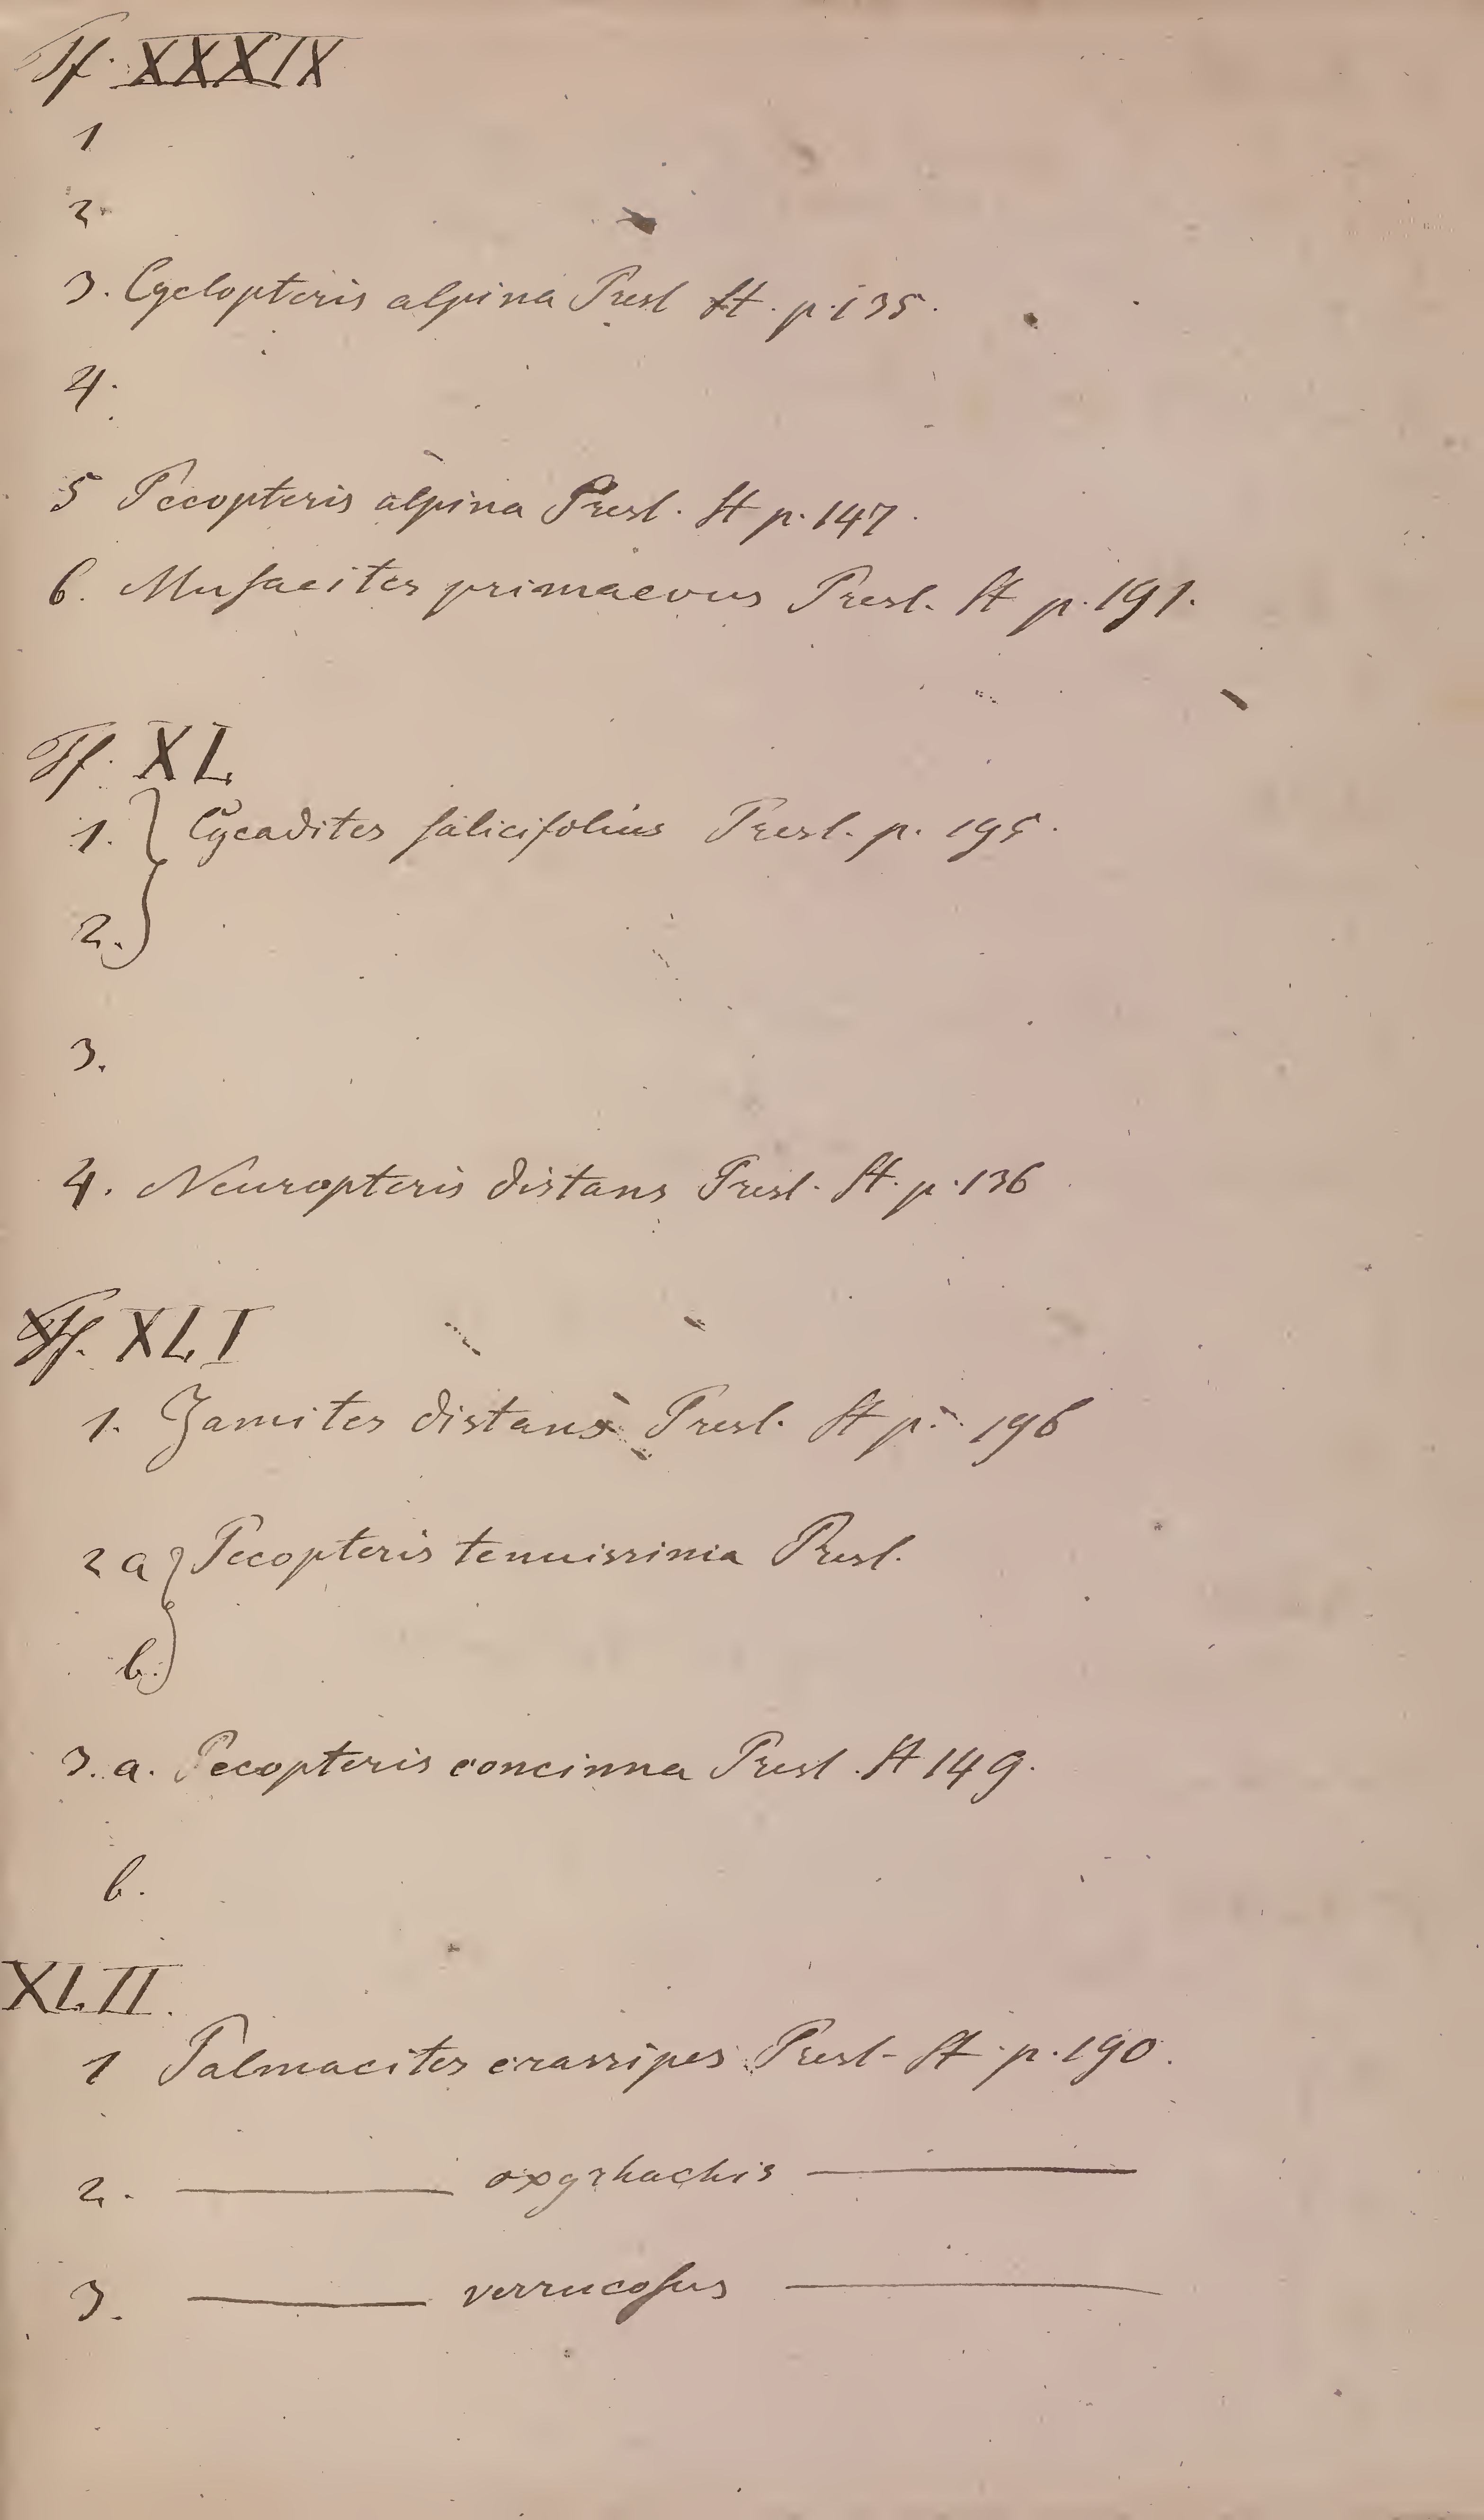 Tf. XXXIX
1
2
3. Cyclopteris alpina Presl St. p. 135.
4.
5 Pecopteris alpina Presl. St p. 147.
6. Musacites primaevus Presl. St p. 191.
Tf. XL
1. Cycadites salicifolius Presl. p. 195.
2.
3.
4. Neuropteris distans Presl. St. p. 136
Tf. XLI
1. Zamites distans Presl. St p. 196
2 a Pecopteris tenuissima Presl.
b.
3. a. Pecopteris concinna Presl. St 149.
b.
XLII.
1 Palmacites crassipes Presl. St. p. 190.
2. —— oxyrhachis ——
3. —— verrucosus ——